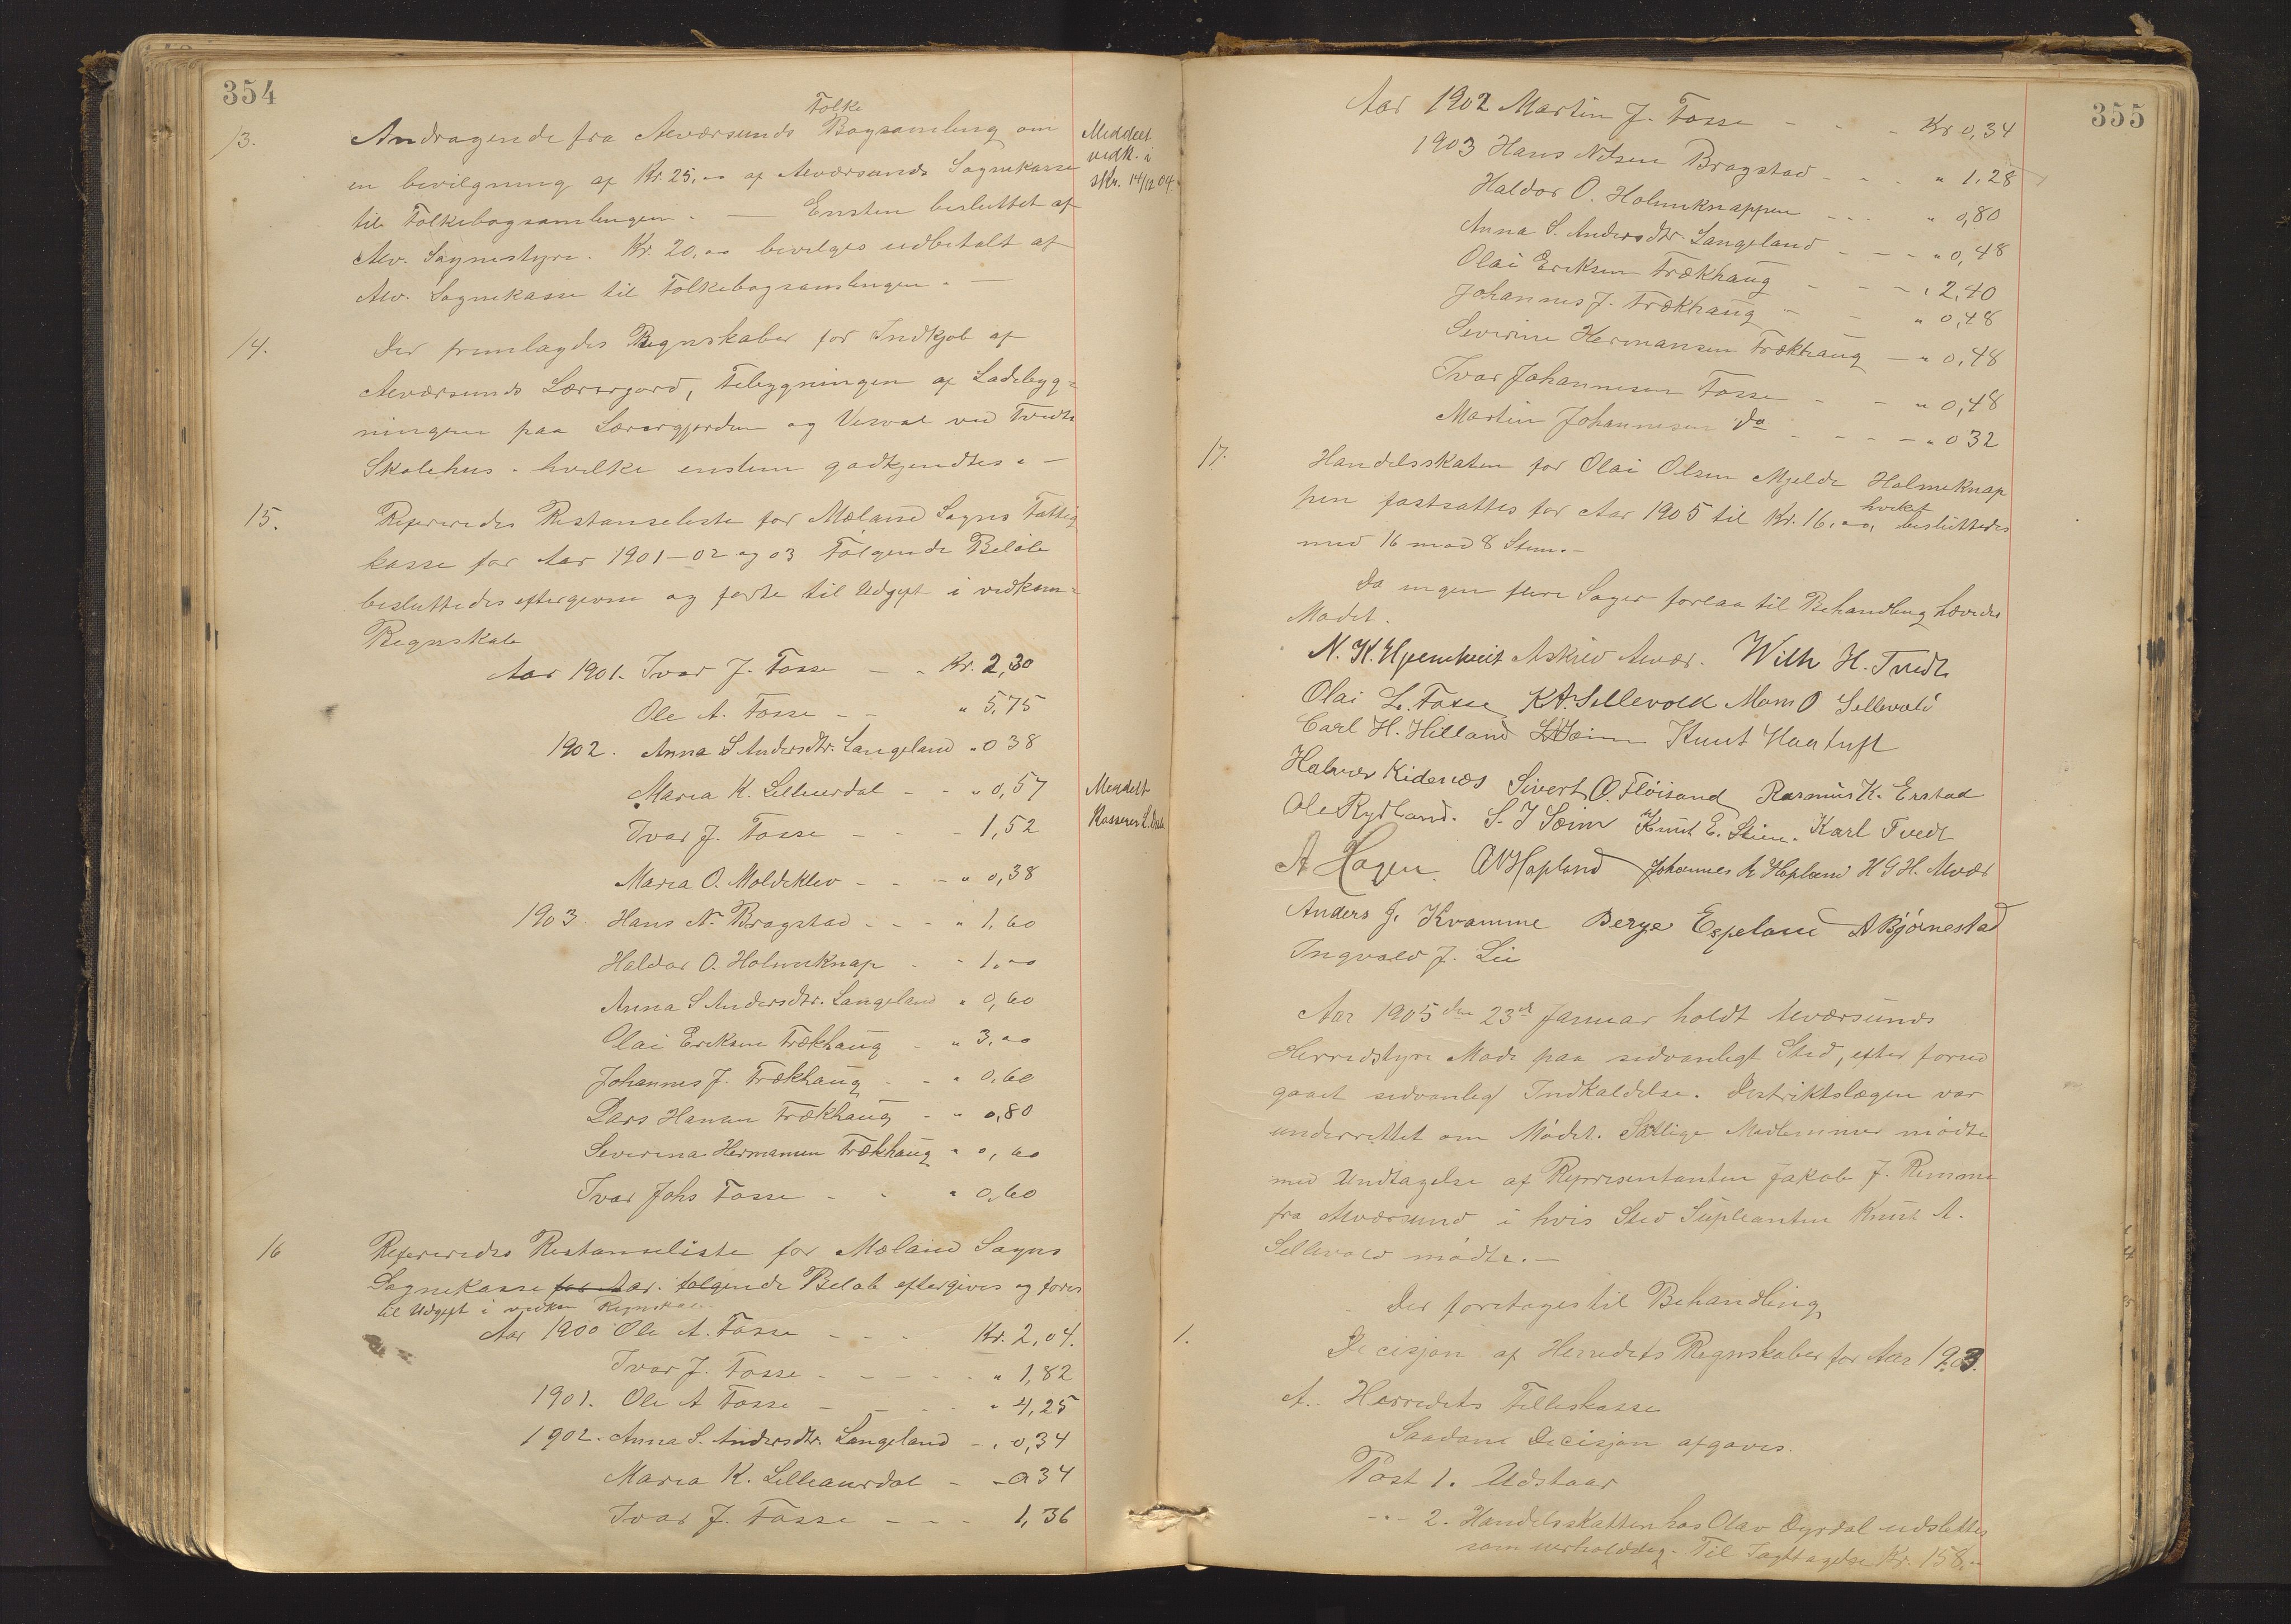 354
Folke
13. Andragende fra Alværsunds Bogsamling om
en bevilgning af Kr. 25,00 af Alværsunds Sognekasse
til Folkebogsamlingen. — Ensten besluttet af
Alv. Sognestyre. Kr. 20,00 bevilges udbetalt af
Alv. Sognekasse til Folkebogsamlingen. —
Meddelt
vedk. i
skr. 14/12 04.
14. Der fremlagdes Regnskaber for Indkjøb af
Alværsunds Lærergard, Tilbygningen af Ladebyg=
ningen paa Lærergjorden og Vesval ved Tvedte
Skolehus. hvilke enstem godkjendtes. —
15. Refereredes Restanseliste for Mæland Sogns Fattig
kasse for Aar 1901-02 og 03 Følgende Beløb
besluttedes eftergivne og førte til Udgift i vedkom=
Regnskab
Aar 1901. Ivar J. Fosse - - Kr. 2,30
Ole A. Fosse - - " 5,75
1902. Anna S Andersdtr. Langeland " 0 38
Maria K. Lilleurdal - - " 0,57
Ivar J. Fosse - - - 1,52
Maria O. Moldeklev - - - " 0,38
Meddelt
Kasserer L.
1903. Hans N. Bragstad - - - " 1,60
Haldor O. Holmeknap - - 1,00
Anna S Andersdtr. Langeland " 0,60
Olai Eriksen Trækhaug - " 3,00
Johannes J. Trækhaug - - " 0,60
Lars Hansen Trækhaug - " 0,80
Severina Hermansen Trækhaug " 0,60
Ivar Johs Fosse - - " 0,60
16 Refereredes Restanseliste for Mæland Sogns
Sognekasse for Aar. følgende Beløb eftergives og føres
til Udgift i vedkom Regnskab
Aar 1900 Ole A. Fosse - - - Kr. 2,04.
Ivar J. Fosse - - - - - " 1,82
1901. Ole A Fosse - - - - " 4,25
1902. Anna S. Andersdtr. Langeland - " 0,34
Maria K. Lilleaurdal - - 0 34
Ivar J. Fosse - - - 1,36
355
Aar 1902 Martin J. Fosse - - - Kr 0,34
1903 Hans Nilsen Bragstad - - - " 1,28
Haldor O. Holmeknappen - - - " 0,80
Anna S. Andersdtr. Langeland - - - " 0,48
Olai Eriksen Trækhaug - - - " 2,40
Johannes J. Trækhaug - - " 0,48
Severine Hermansen Trækhaug - " 0,48
Ivar Johannesen Fosse - - " 0,48
Martin Johannesen do - - - - " 0 32
17. Handelsskaten for Olai Olsen Mjelde Holmeknap
pen fastsattes for Aar 1905 til Kr. 16,00, hvilket besluttedes
med 16 mod 8 Stem. -
Da ingen flere Sager forlaa til Behandling hævedes
Mødet.
N. K. Hjemhveit Askild Alvær. Wilh H. Tvedt
Olai L. Fosse KA. Sellevold Mons O Sellevold
Carl H. Hilland Knut Haatuft
Halvor Kidenæs Sivert O. Fløisand Rasmus K. Erstad
Ole Rydland. S. J Soim Knut E. Stien. Karl Tvedt
A Hagen. AVHopland Johannes K Hopland H G H. Alvær
Anders J. Kvamme Berge Espeland A Bjørnestad
Ingvald J. Lie
Aar 1905 den 23de Januar holdt Alværsunds
Herredstyre Møde paa sedvanligt Sted, efter forud
gaaet sedvanlig Indkaldelse. Distriktslægen var
underrettet om Mødet. Samtlige Medlemmer mødte
med Undtagelse af Repræsentanten Jakob J. Remme
fra Alværsund i hvis Sted Supleanten Knut A.
Sellevold mødte. —
Der foretoges til Behandling
1. Decisjon af Herredets Regnskaber for Aar 1903.
A. Herredets Felleskasse
Saadan Decisjon afgaves.
Post 1. Udstaar
- " - 2. Handelsskatten hos Olav Dyrdal udslettes
som uerholdelig. Til Iagttagelse Kr. 158,00